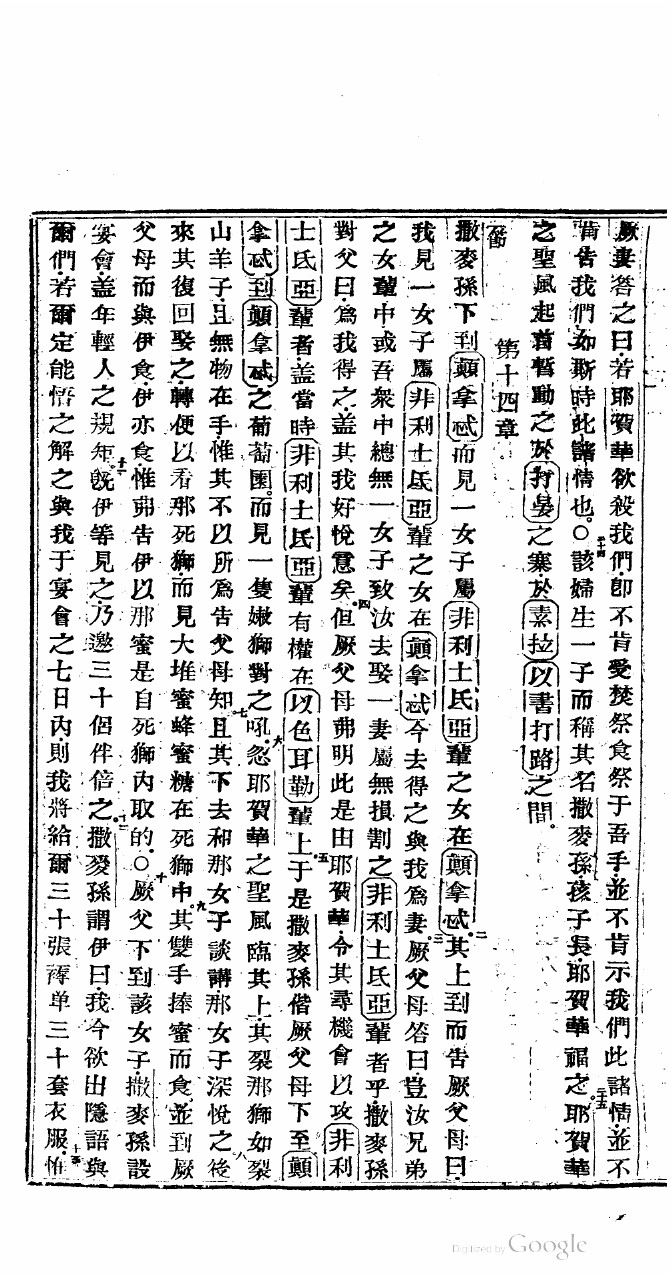 厥妻答之曰若耶賀華欲殺我們卽不肯受焚祭食祭于吾手並不肯示我們此諸情並不
二十四 二十五
吿我們如斯時此諸情也○該婦生一子而稱其名撒麥孫孩子長耶賀華福之耶賀華
之聖風起首暫動之於打晏之寨於素拉以書打路之間
第十四章
節
撒麥孫下到顛拿忒而見一女子屬非利士氏亞輩之女在顛拿忒二其上到而告厥父母曰
我見一女子屬非利士氏亞輩之女在顛拿忒今去得之與我爲妻三厥父母答曰豈汝兄弟
之女輩中或吾衆中總無一女子致汝去娶一妻屬無損割之非利士氏亞輩者乎撒麥孫
對父曰爲我得之盖其我好悅意矣四但厥父母弗明此是由耶賀華令其尋機會以攻非利
士氏亞輩者盖當時非利士氏亞輩有權在以色耳勒輩上五于是撒麥孫偕厥父母下至顛
拿忒到顛拿忒之葡萄園而見一隻嫩獅對之吼六忽耶賀華之聖風臨其上其裂那獅如裂
山羊子且無物在手惟其不以所爲告父母知七且其下去和那女子談講那女子深悅之八後
來其復回娶之轉便以看那死獅而見大堆蜜蜂蜜糖在死獅中九其雙手捧蜜而食並到厥
父母而與伊食伊亦食惟弗告伊以那蜜是自死獅內取的○十厥父下到該女子撒麥孫設
宴會盖年輕人之規矩十一旣伊等見之乃邀三十個伴倍之十二撒麥孫謂伊曰我今欲出隱語與
爾們若爾定能悟之解之與我于宴會之七日內則我將給爾三十張褥单三十套衣服十三惟
Digitized by Google